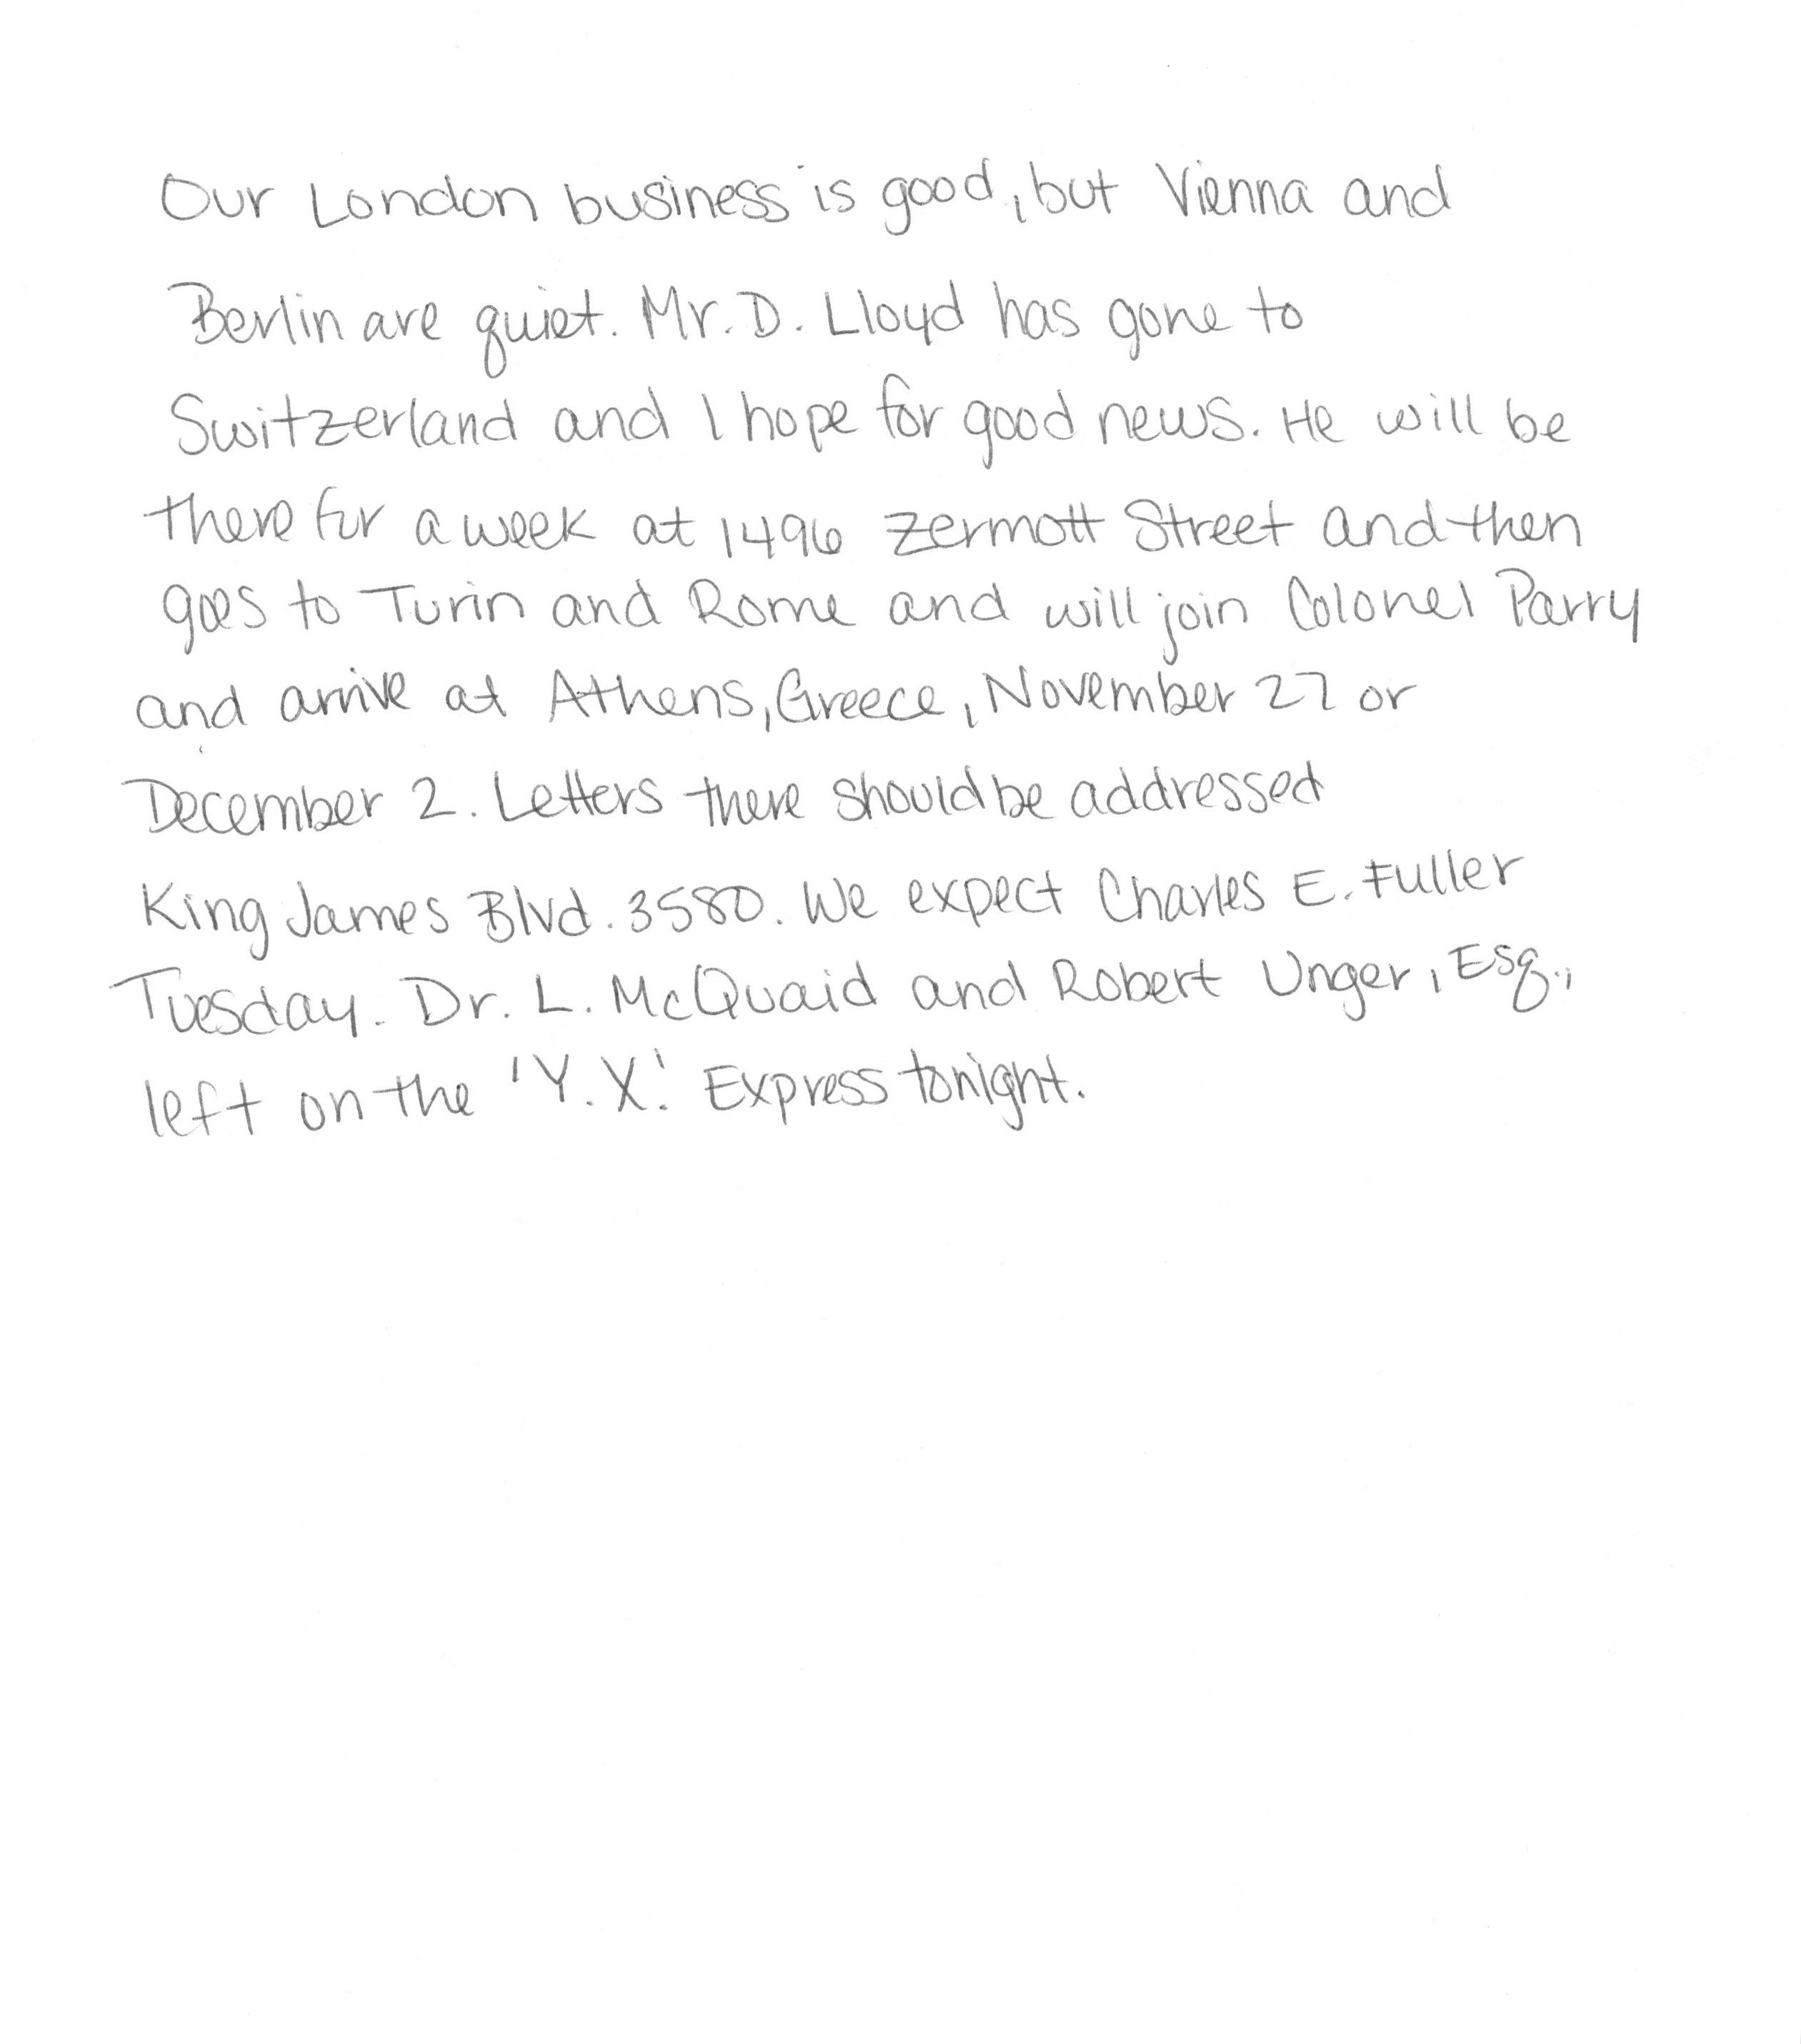 Our London business is good, but Vienna and
Berlin are quiet. Mr. D. Lloyd has gone to
Switzerland and I hope for good news. He will be
there for a week at 1496 Zermott Street and then
goes to Turin and Rome and will join Colonel Parry
and arrive at Athens, Greece, November 27 or
December 2. Letters there should be addressed
King James Blvd. 3580. We expect Charles E. Fuller
Tuesday. Dr. L. McQuaid and Robert Unger, Esq.,
left on the 'Y.X.' Express tonight.